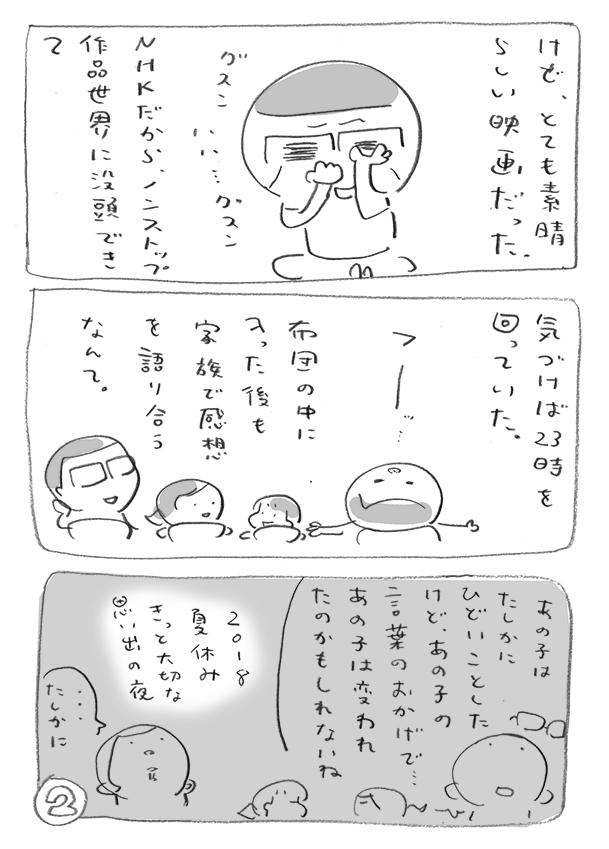 けど、とても素晴
らしい映画だった。
グスン
いい…グスン
NHKだから、ノンストップ
作品世界に没頭でき
て
気づけば23時を
回っていた。
フーッ…
布団の中に
入った後も
家族で感想
を語り合う
なんて。
あの子は
たしかに
ひどいことした
けど、あの子の
言葉のおかげで…
あの子は変われ
たのかもしれないね
2018
夏休み
きっと大切な
思い出の夜
…
たしかに
2